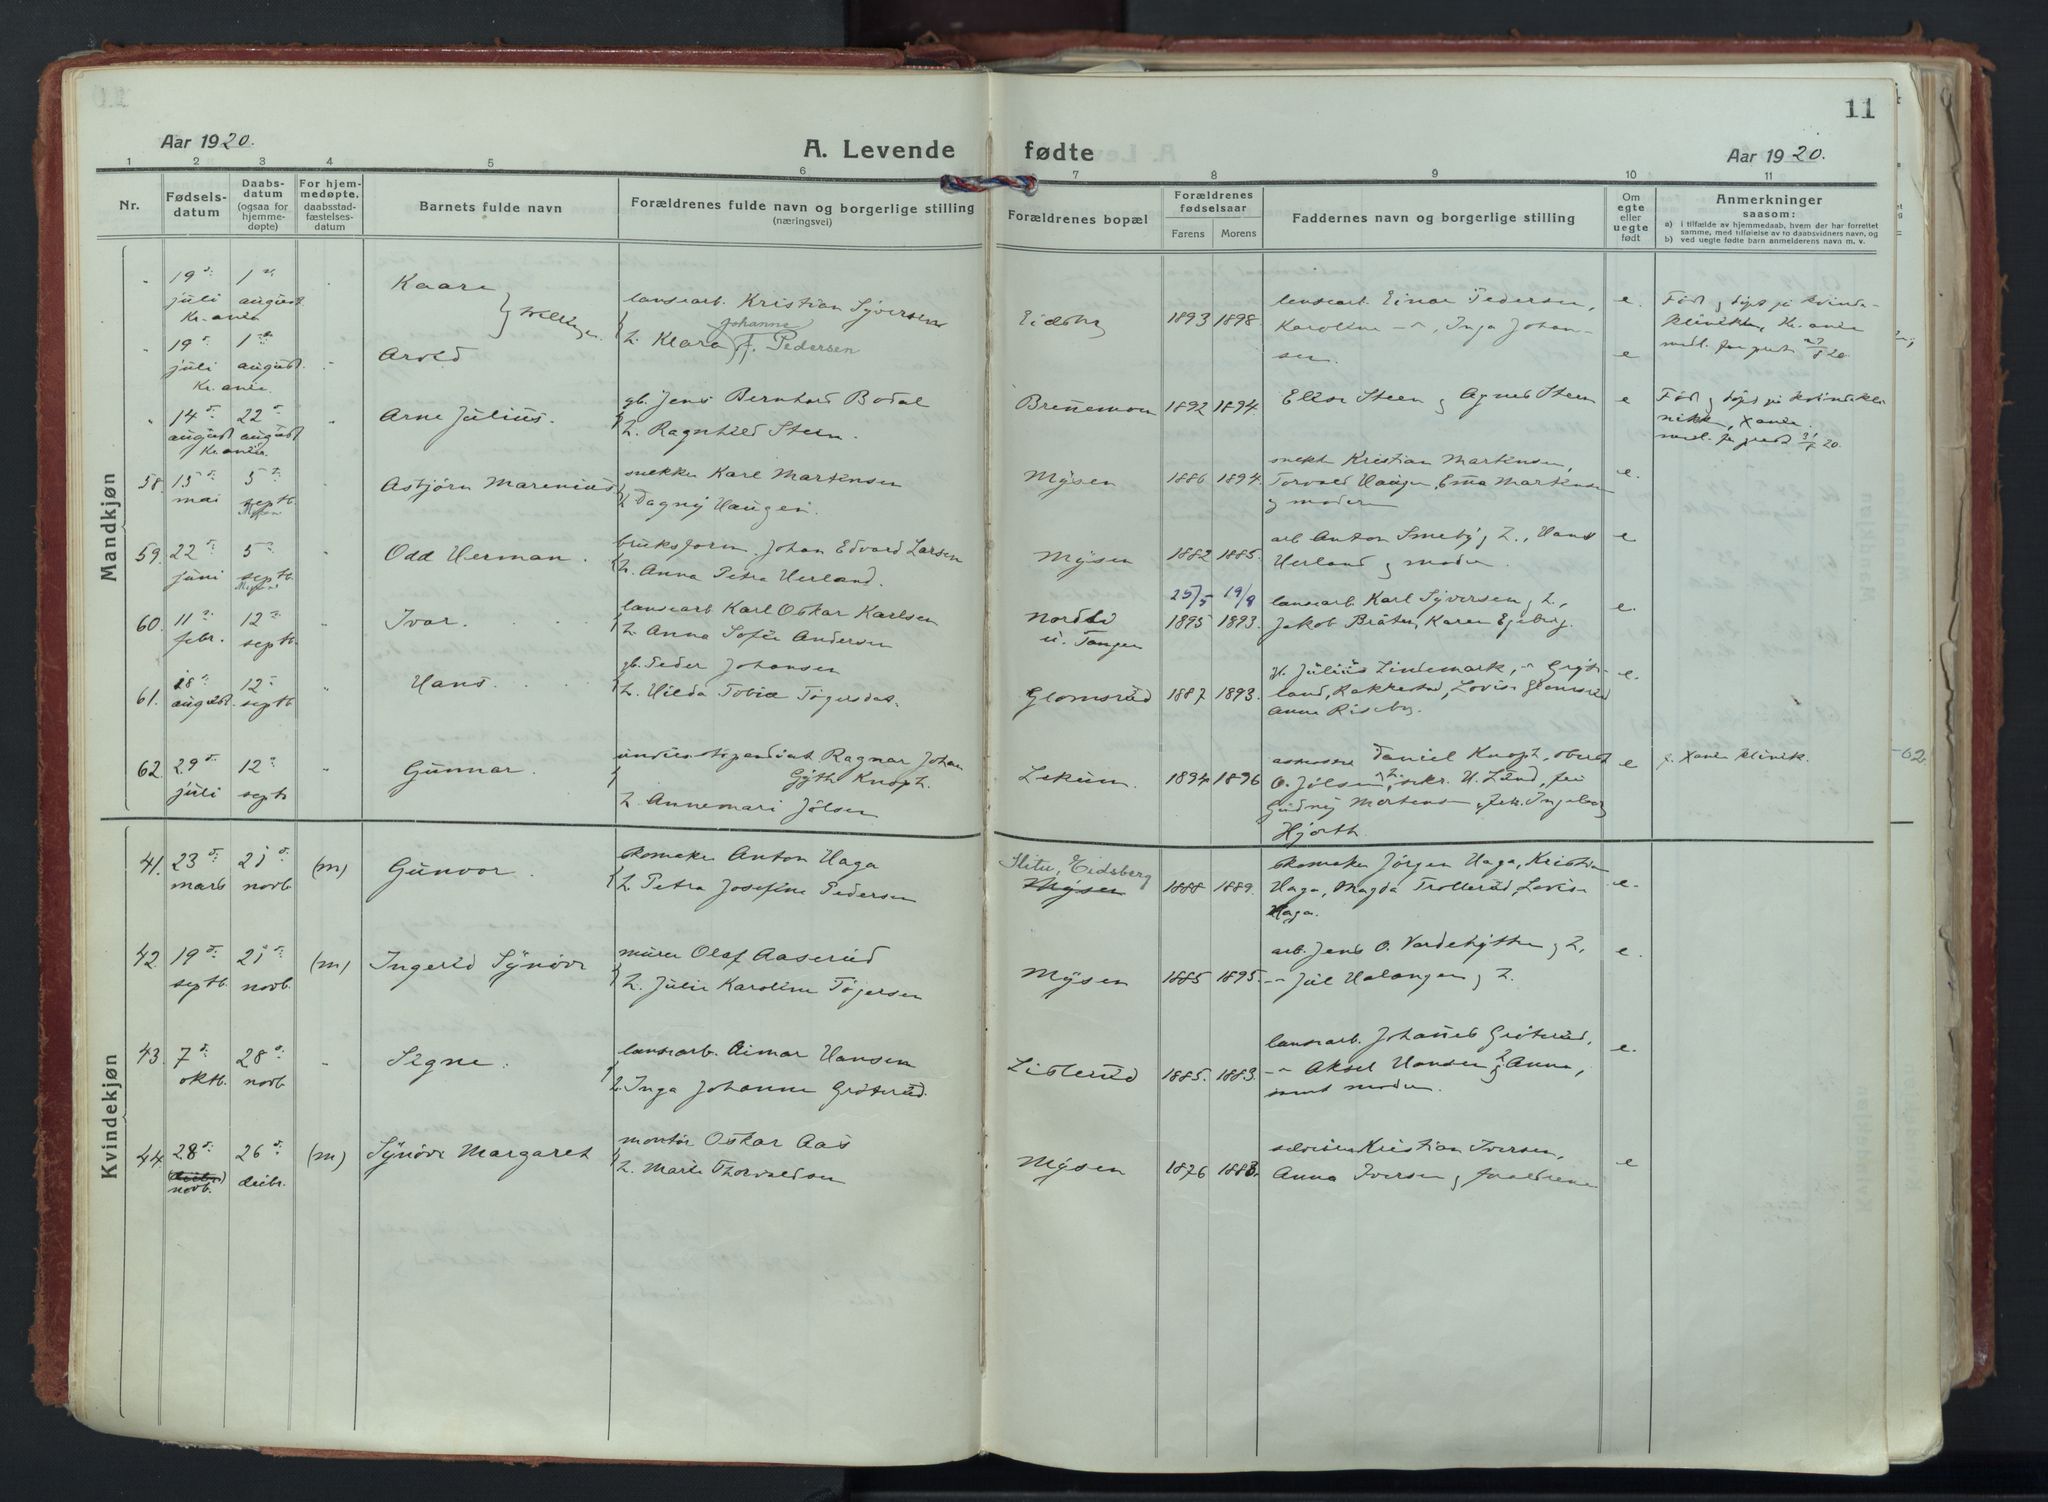 11
Aar 1920.
A. Levende fødte
Aar 1920.
1 2 3 4 5 6 7 8 9 10 11
Nr.
Fødsels-
datum
Daabs-
datum
(ogsaa for
hjemme-
døpte)
For hjem-
medøpte,
daabsstad-
fæstelses-
datum
Barnets fulde navn
Forældrenes fulde navn og borgerlige stilling
(næringsvei)
Forældrenes bopæl
Forældrenes
fødselsaar
Farens
Morens
Faddernes navn og borgerlige stilling
Om
egte
eller
uegte
født
Anmerkninger
saasom:
a) i tilfælde av hjemmedaab, hvem der har forrettet
samme, med tilføielse av to daabsvidners navn, og
b) ved uegte fødte barn anmelderens navn m. v.
Mandkjøn
19de juli Kr.ania
1ste august
Kaare
Tvillinger
landarb. Kristian Syversen
h. Klara Johanne f. Pedersen
1893 1898.
Einar Pedersen,
Karoline - " -, Inga Johan-
sen.
e.
Født og døpt på kvinde-
klinikken, Kr.ania
19de juli Kr.ania
1ste august
Arvid
e
14de august Kr.ania
22de august
Arne Julius.
gb. Jens Bernhard Bodal
h. Ragnhild Steen.
Brennemoen
1892 1894.
Elise Steen og Agnes Steen
e
Født og døpt på kvindekli
nikken, Xania.
58. 15de mai
5te septb. Mysen
Asbjørn Marenius
snekker Karl Martinsen
h. Dagny Haugen.
Mysen
1886 1894.
snekk Kristian Martinsen,
Torvald Haugen, Ema Martinsen
og moder
e.
59. 22de juni
5te septb.
Odd Herman.
bruksform. Johan Edvard Larsen
h. Anna Petra Herland.
Mysen
1882 1885.
arb Anton Smeby og h., Hans
Herland og moder.
e
60. 11te febr.
12te septb.
Ivar.
Karl Oskar Karlsen
h. Anna Sofie Andersen
Nordli
u. Tangen
25/5 1895 19/9 1893.
Karl Syversen og h.,
Jakob Bråten, Karen Egeberg.
e.
61. 28de august.
12te septb
Hans.
gb. Peder Johansen
h. Hilda Tobia Tøgersdat.
Glomsrud
1887 1893.
Julius Lindemark,
land, Rakkestad, Lovise Glomsrud
Anna Riseberg.
e.
62. 29de juli
12te septb
Gunnar.
Ragnar Johan
Gyth Knoph.
h. Annemari Jølsen
Lekum.
1894 1896
assessor Daniel Knoph, oberst
O. Jølsen, sekr. H. Lund, frk
Gudny Mortensen, frk. Ingeborg
Hjorth.
e
f. Xania klinik.
Kvindekjøn
41. 23de marts
21de novb.
(m)
Gunvor.
skomaker Anton Haga
h. Petra Josefine Pedersen
Slitu, Eidsberg
Mysen
1888 1889.
skomaker Jørgen Haga, Kristian
Haga, Magda Trollerud, Lovise
Haga.
e.
42. 19de septb.
21de novb.
(m)
Ingerid Synøve
murer Olaf Aaserud
h. Julie Karoline Tøgersen
Mysen
1885 1895.
arb. Jens O. Vardehytten og h,
- " - Jul Halangen og h.
e.
43. 7de oktb.
28de novb
Signe.
Eimar Hansen
h. Inga Johanne Grøterud.
Listerud
1885. 1883.
Johannes Grøterud,
- " - Aksel Hansen og h Anna,
samt moder.
e.
44. 28de novb.
26de decbr.
(m)
Synøve Margaret
montør Oskar Aas
h. Marie Thorvaldsen
Mysen
1876 1883.
Kristian Iversen,
Anna Iversen og forældrene
e
62